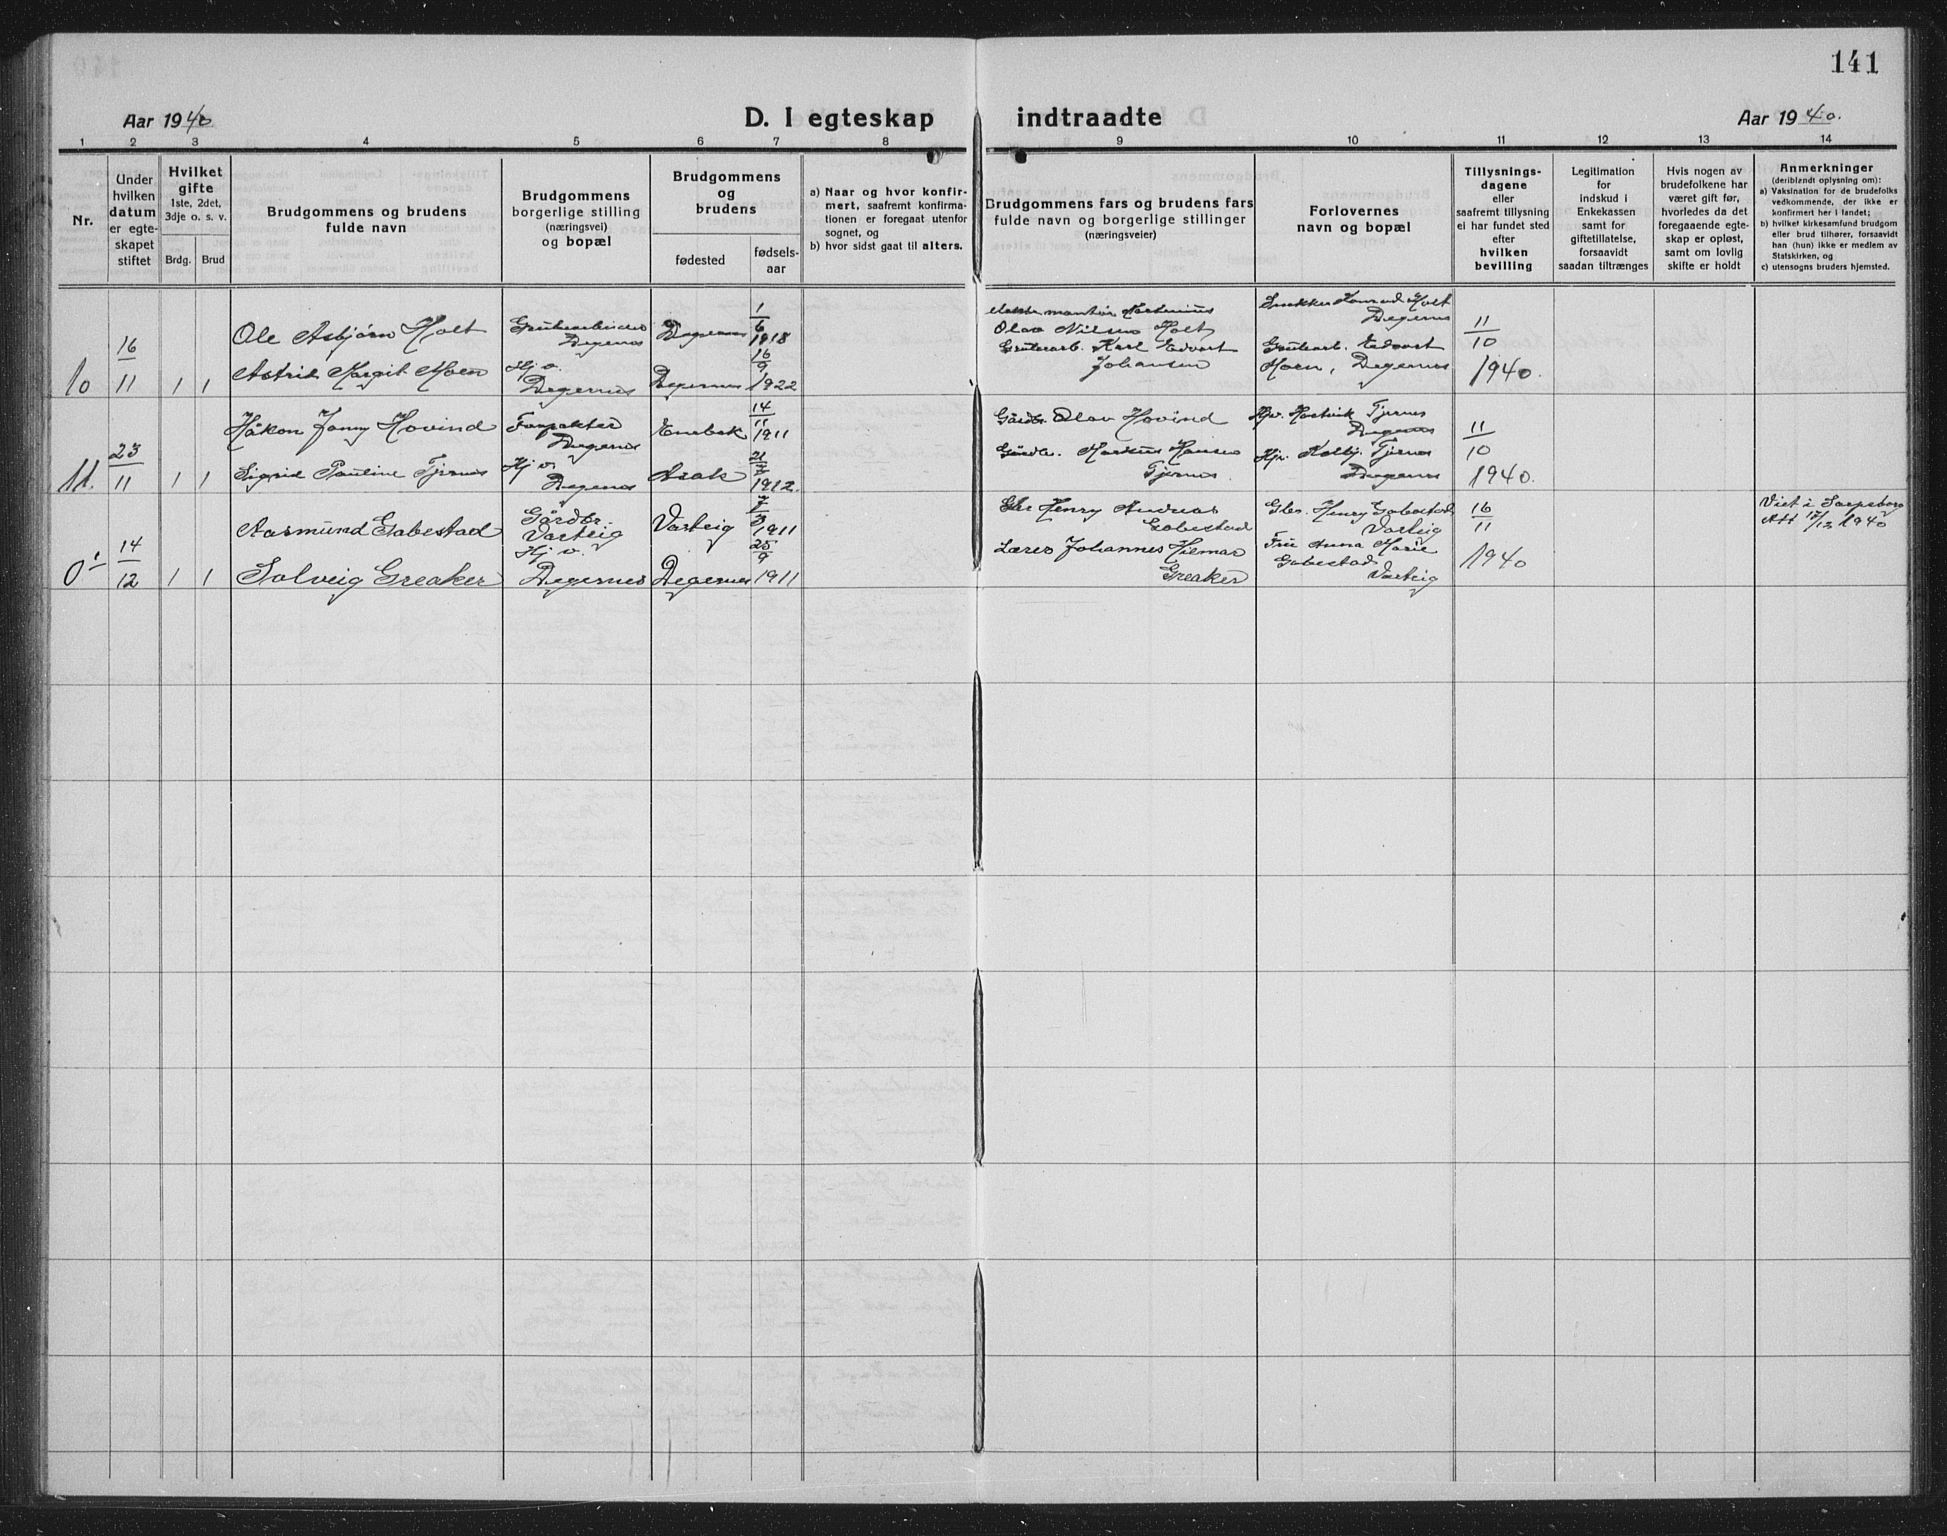 141
Aar 1940
D. I egteskap indtraadte
Aar 1940.
1 2 3 4 5 6 7 8 9 10 11 12 13 14
Nr.
Under
hvilken
datum
er egte-
skapet
stiftet
Hvilket
gifte
1ste, 2det,
3dje o. s. v.
Brdg. Brud
Brudgommens og brudens
fulde navn
Brudgommens
borgerlige stilling
(næringsvei)
og bopæl
Brudgommens
og
brudens
fødested
fødsels-
aar
a) Naar og hvor konfir-
mert, saafremt konfirma-
tionen er foregaat utenfor
sognet, og
b) hvor sidst gaat til alters.
Brudgommens fars og brudens fars
fulde navn og borgerlige stillinger
(næringsveier)
Forlovernes
navn og bopæl
Tillysnings-
dagene
eller
saafremt tillysning
ei har fundet sted
efter
hvilken
bevilling
Legitimation
for
indskud i
Enkekassen
samt for
giftetillatelse,
forsaavidt
saadan tiltrænges
Hvis nogen av
brudefolkene har
været gift før,
hvorledes da det
foregaaende egte-
skap er opløst,
samt om lovlig
skifte er holdt
Anmerkninger
(deriblandt oplysning om):
a) Vaksination for de brudefolks
vedkommende, der ikke er
konfirmert her i landet;
b) hvilket kirkesamfund brudgom
eller brud tilhører, forsaavidt
han (hun) ikke er medlem av
Statskirken, og
c) utensogns bruders hjemsted.
10
16/11
1 1
Ole Asbjørn Holt
Astrid Margit Moen
Grubearbeider
Degernes
Hj. v.
Degernes
Degernes
Degernes
1/6
1918
16/9
1922
Olav Nilsen Holt
Grubearb. Karl Edvart
Johansen
Snekker Konrad Holt
Degernes
Grubearb. Edvart
Moen, Degernes
11/10
1940.
11.
23/11
1 1
Håkon Jonny Hovind
Sigrid Pauline Tjernes
Forpakter
Degernes
Hj v.
Degernes
Enebak
Asak
14/11
1911
1912.
Gårdbr. Olav Hovind
Gårdbr. Markus Hansen
Tjernes
Tjernes
Degernes
Kolbj. Tjernes
Degernes
11/10
1940.
14/12
1 1
Aasmund Gabestad
Solveig Greaker
Gårdbr.
Varteig
Hj v.
Degernes
Varteig
Degernes
1911
25/9
1911
Gbr Henry Andreas
Gabestad
Lærer Johannes Hilmar
Greaker
Gbr. Henry Gabestad
Varteig
Fru Anna Marie
Gabestad
Varteig
16/11
1940
Viet i Sarpsborg
Att 17/12 1940